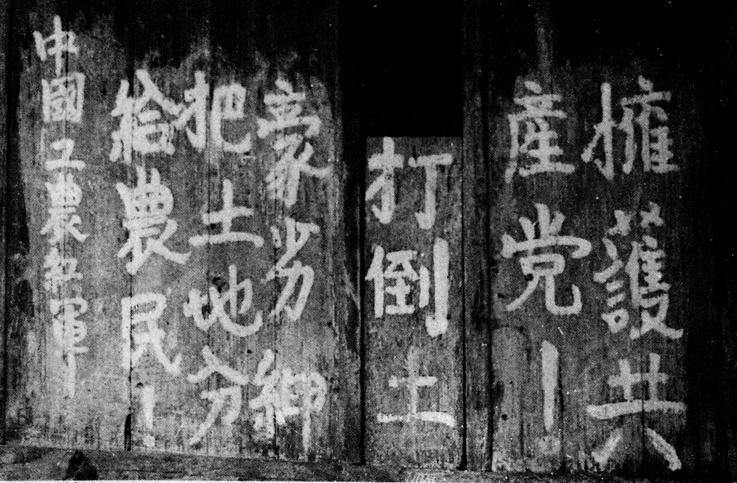 擁護共
産党！
打倒土
豪劣紳
把土地分
給農民！
中國工農紅軍！